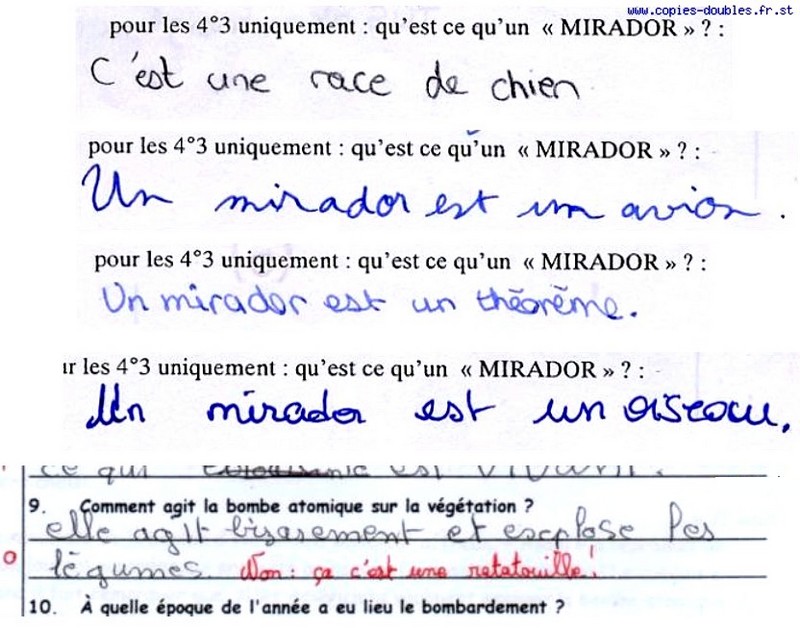 www.copies-doubles.fr.st
pour les 4°3 uniquement : qu'est ce qu'un « MIRADOR » ? :
C'est une race de chien
pour les 4°3 uniquement : qu'est ce qu'un « MIRADOR » ? :
Un mirador est un avion .
pour les 4°3 uniquement : qu'est ce qu'un « MIRADOR » ? :
Un mirador est un théorème.
ır les 4°3 uniquement : qu'est ce qu'un « MIRADOR » ? :
Un mirador est un oiseau.
ce qui est vivant.
9. Comment agit la bombe atomique sur la végétation ?
elle agit bisarement et explose les
légumes. Non : ça c'est une ratatouille !
10. À quelle époque de l'année a eu lieu le bombardement ?